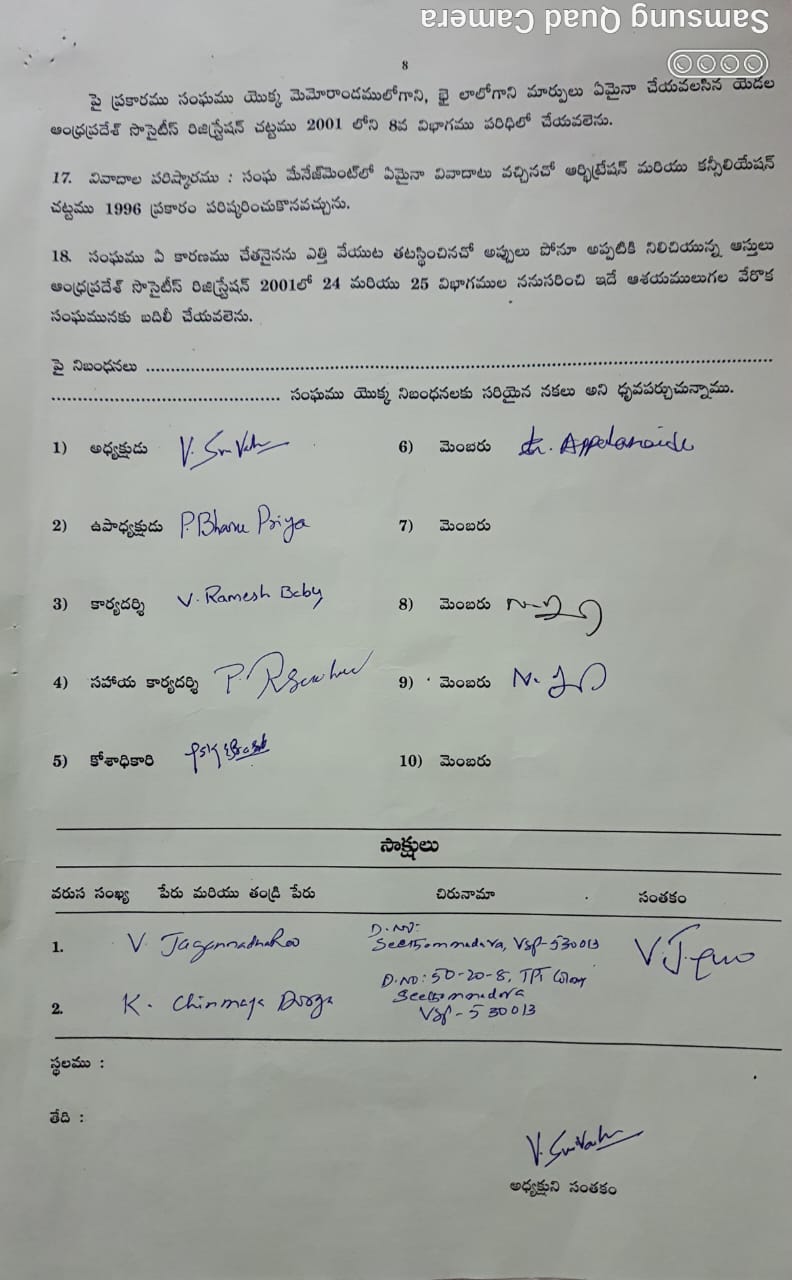 Samsung Quad Camera
8
పై ప్రకారము సంఘము యొక్క మెమోరాండములోగాని, భై లాలోగాని మార్పులు ఏమైనా చేయవలసిన యెడల
ఆంధ్రప్రదేశ్ సొసైటీస్ రిజిస్ట్రేషన్ చట్టము 2001 లోని 8వ విభాగము పరిధిలో చేయవలెను.
17. వివాదాల పరిష్కారము : సంఘ మేనేజ్‌మెంట్‌లో ఏమైనా వివాదాలు వచ్చినచో ఆర్భిట్రేషన్ మరియు కన్సీలియేషన్
చట్టము 1996 ప్రకారం పరిష్కరించుకొనవచ్చును.
18. సంఘము ఏ కారణము చేతనైనను ఎత్తి వేయుట తటస్థించినచో అప్పులు పోనూ అప్పటికి నిలిచియున్న ఆస్తులు
ఆంధ్రప్రదేశ్ సొసైటీస్ రిజిస్ట్రేషన్ 2001లో 24 మరియు 25 విభాగముల ననుసరించి ఇదే ఆశయములుగల వేరొక
సంఘమునకు బదిలీ చేయవలెను.
పై నిబంధనలు ........................................................................................................................
............................................ సంఘము యొక్క నిబంధనలకు సరియైన నకలు అని ధృవపర్చుచున్నాము.
1) అధ్యక్షుడు
6) మెంబరు Appalanaidu
2) ఉపాధ్యక్షుడు P. Bhanu Priya
7) మెంబరు
3) కార్యదర్శి V. Ramesh Baby
8) మెంబరు
4) సహాయ కార్యదర్శి
9) మెంబరు
5) కోశాధికారి
10) మెంబరు
సాక్షులు
వరుస సంఖ్య పేరు మరియు తండ్రి పేరు చిరునామా సంతకం
1. V. Jagannadha Rao D.No: 
Seethammadara, VSP-530013
2. K. Chinmaya Durga D.NO: 50-20-8, TPT Colony
Seethammadara
VSP-530013
స్థలము :
తేది :
అధ్యక్షుని సంతకం